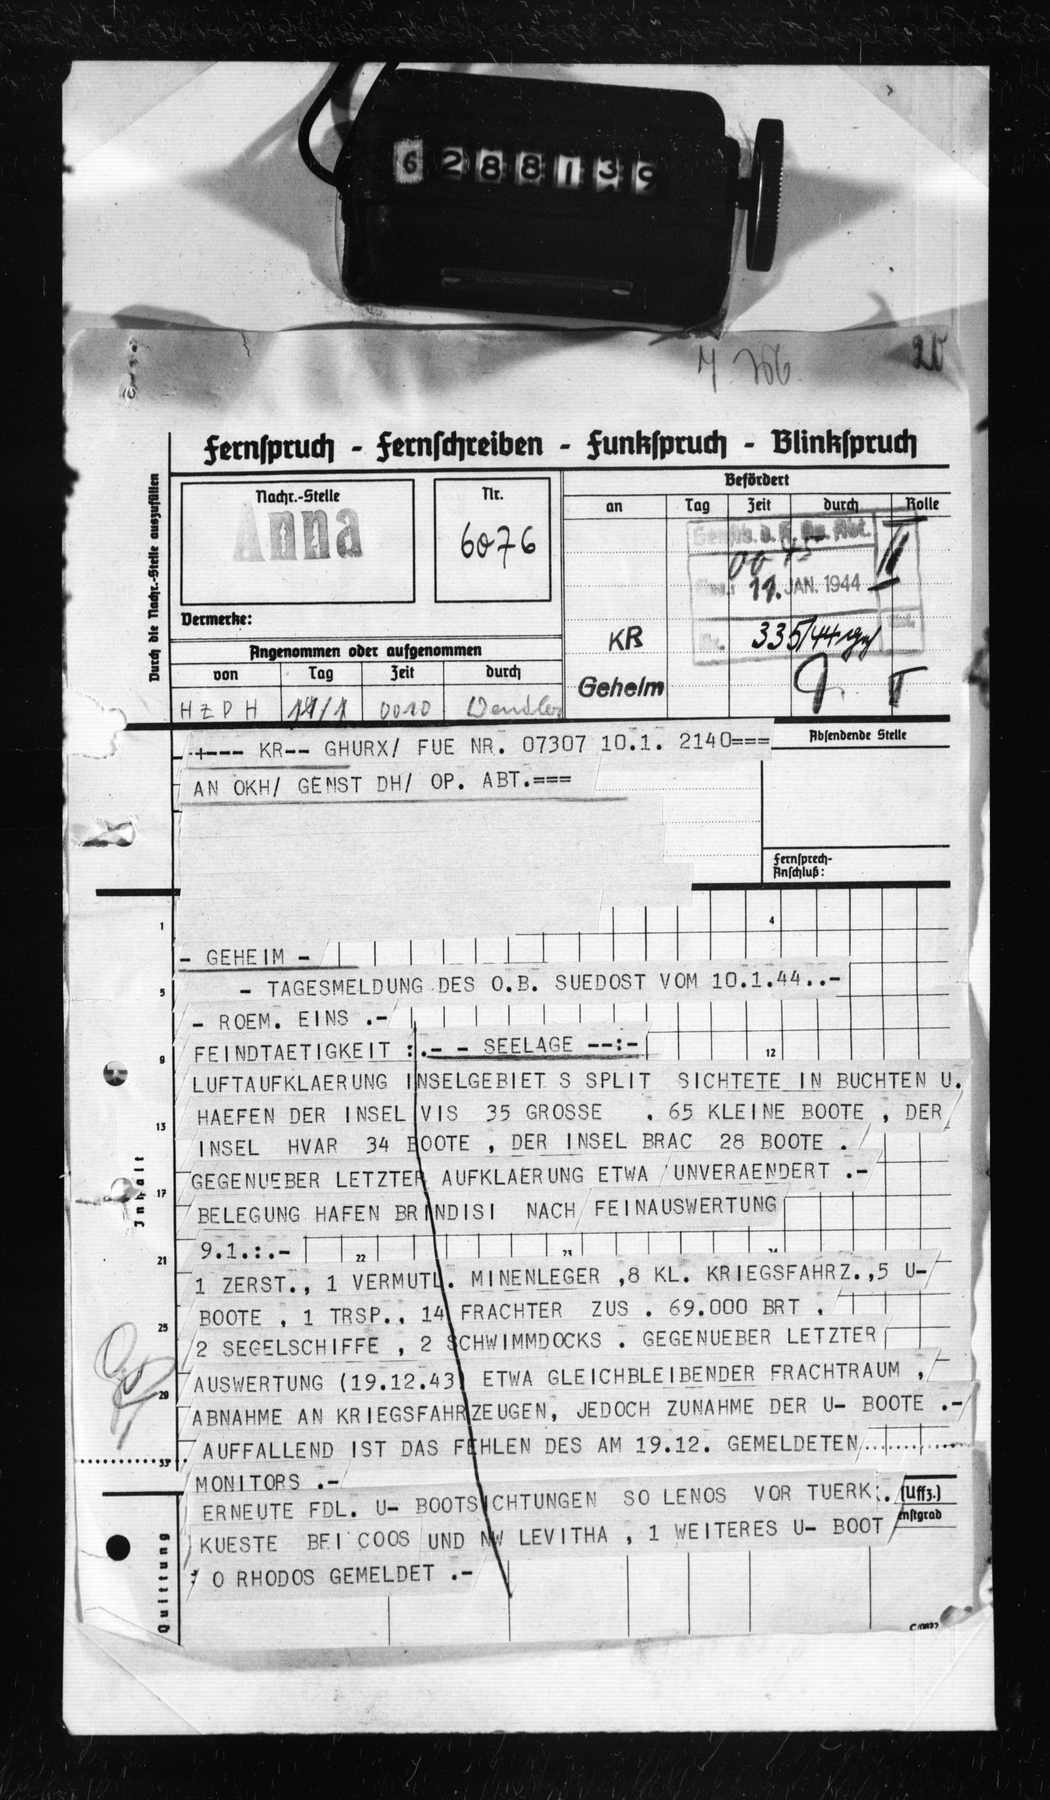 6288139
20
Fernspruch - Fernschreiben - Funkspruch - Blinkspruch
Durch die Nachr.-Stelle auszufüllen
Nachr.-Stelle
Anna
Nr.
6076
Vermerke:
Befördert
an Tag Zeit durch Rolle
11. JAN. 1944
KR
Nr. 335/44
Geheim
Angenommen oder aufgenommen
von Tag Zeit durch
HZPH 11/1 0010 Wendler
Absendende Stelle
-+--- KR-- GHURX/ FUE NR. 07307 10.1. 2140===
AN OKH/ GENST DH/ OP. ABT.===
Fernsprech-
Anschluß:
1 4
- GEHEIM -
5 - TAGESMELDUNG DES O.B. SUEDOST VOM 10.1.44..-
- ROEM. EINS .-
9 12
FEINDTAETIGKEIT :.- - SEELAGE --:-
LUFTAUFKLAERUNG INSELGEBIET S SPLIT SICHTETE IN BUCHTEN U.
HAEFEN DER INSEL VIS 35 GROSSE . 65 KLEINE BOOTE , DER
13
INSEL HVAR 34 BOOTE , DER INSEL BRAC 28 BOOTE .
GEGENUEBER LETZTER AUFKLAERUNG ETWA UNVERAENDERT .-
17
Inhalt
BELEGUNG HAFEN BRINDISI NACH FEINAUSWERTUNG
9.1.:.-
21 22 23 24
1 ZERST., 1 VERMUTL. MINENLEGER ,8 KL. KRIEGSFAHRZ.,5 U-
BOOTE , 1 TRSP., 14 FRACHTER ZUS . 69.000 BRT .
25
2 SEGELSCHIFFE , 2 SCHWIMMDOCKS . GEGENUEBER LETZTER
AUSWERTUNG (19.12.43) ETWA GLEICHBLEIBENDER FRACHTRAUM ,
29
ABNAHME AN KRIEGSFAHRZEUGEN, JEDOCH ZUNAHME DER U- BOOTE .-
AUFFALLEND IST DAS FEHLEN DES AM 19.12. GEMELDETEN
33
MONITORS .-
ERNEUTE FDL. U- BOOTSICHTUNGEN SO LENOS VOR TUERK.
(Uffz.)
KUESTE BEI COOS UND NW LEVITHA , 1 WEITERES U- BOOT
O RHODOS GEMELDET .-
Quittung